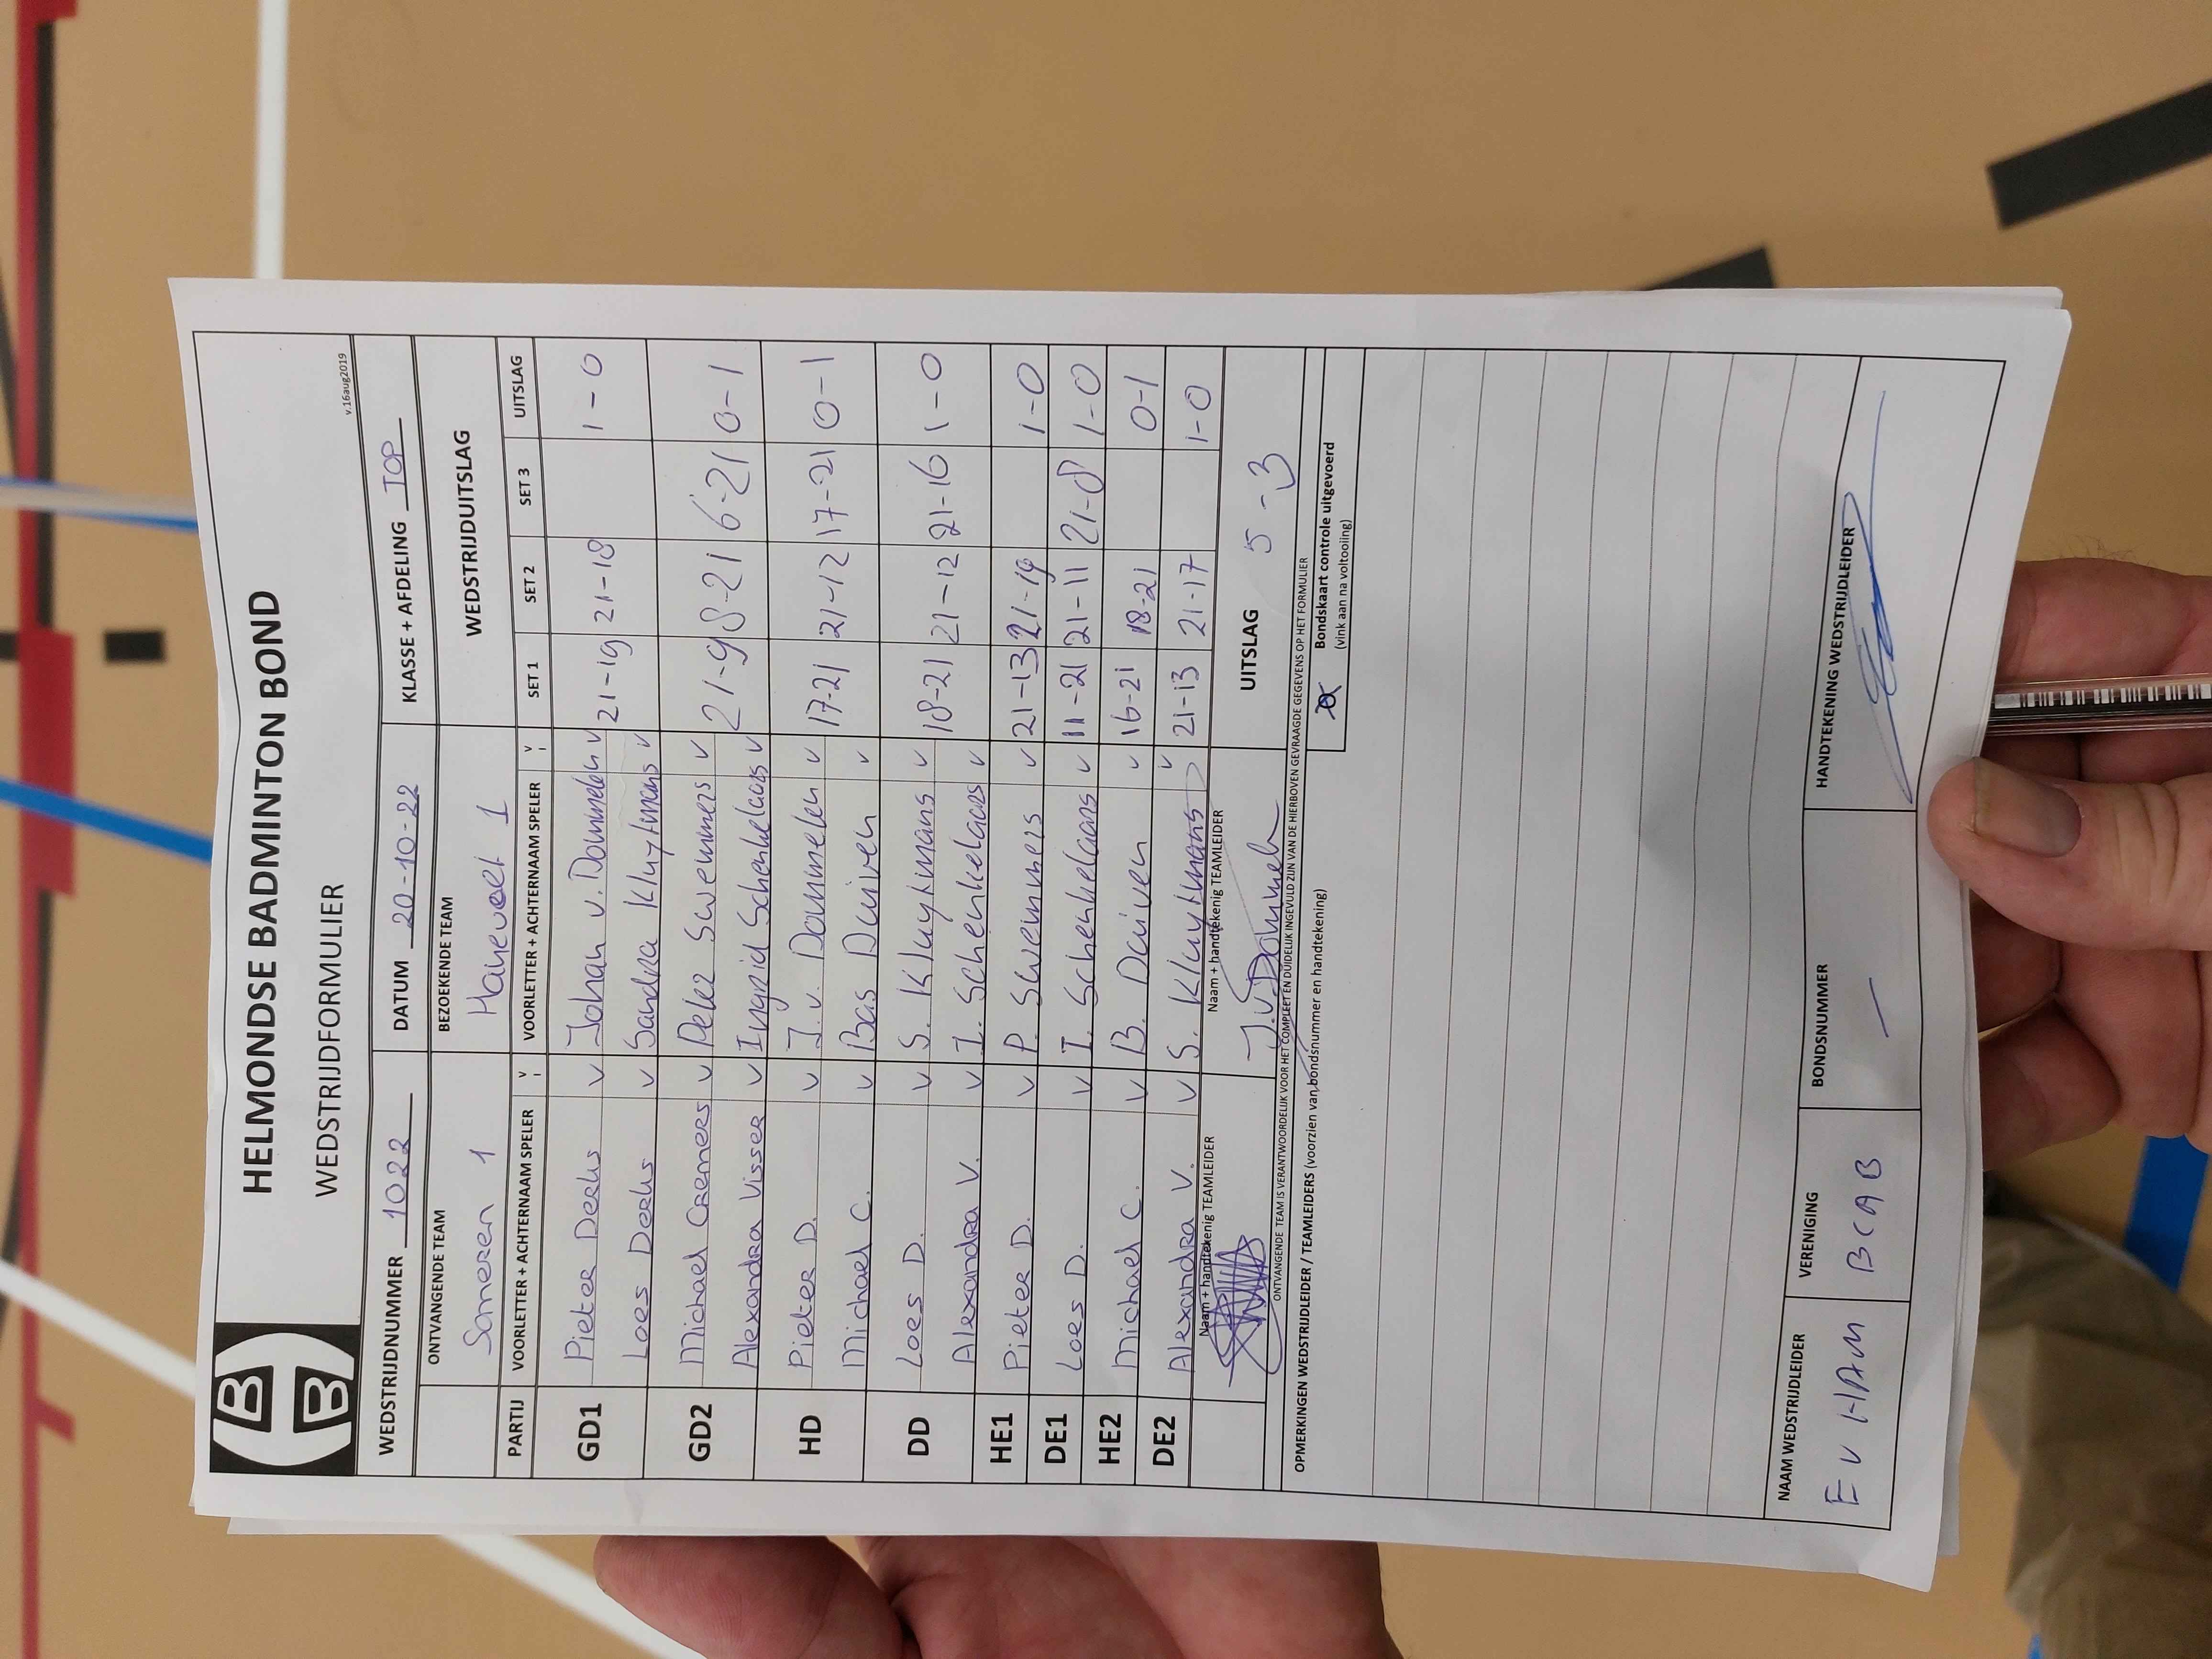 HELMONDSE BADMINTON BOND
WEDSTRIJDFORMULIER
v.16aug2019
WEDSTRIJDNUMMER 1022 DATUM 20-10-22 KLASSE + AFDELING TOP
ONTVANGENDE TEAM BEZOEKENDE TEAM WEDSTRIJDUITSLAG
Someren 1
PARTIJ VOORLETTER + ACHTERNAAM SPELER V VOORLETTER + ACHTERNAAM SPELER V SET 1 SET 2 SET 3 UITSLAG
GD1 Pieter Derks v Johan v. Dommelen v 21-19 21-18 1-0
Loes Derks v Sandra Kluytmans v
GD2 Michael Cremers v Peter Swemmers v 21-9 8-21 6-21 0-1
Alexandra Visser v Ingrid Schenkelaars v
HD Pieter D. v J. v. Dommelen v 17-21 21-12 17-21 0-1
Michael C. v Bas Duiven v
DD Loes D. v S. Kluytmans v 18-21 21-12 21-16 1-0
Alexandra V. v I. Schenkelaars v
HE1 Pieter D. v P. Swemmers v 21-13 21-19 1-0
DE1 Loes D. v I. Schenkelaars v 11-21 21-11 21-8 1-0
HE2 Michael C. v B. Duiven v 16-21 18-21 0-1
DE2 Alexandra V. v S. Kluytmans v 21-13 21-17 1-0
Naam + handtekenig TEAMLEIDER Naam + handtekenig TEAMLEIDER UITSLAG 5-3
J.v.Dommeln
ONTVANGENDE TEAM IS VERANTWOORDELIJK VOOR HET COMPLEET EN DUIDELIJK INGEVULD ZIJN VAN DE HIERBOVEN GEVRAAGDE GEGEVENS OP HET FORMULIER
OPMERKINGEN WEDSTRIJDLEIDER / TEAMLEIDERS (voorzien van bondsnummer en handtekening)
Bondskaart controle uitgevoerd
(vink aan na voltooiing)
NAAM WEDSTRIJDLEIDER VERENIGING BONDSNUMMER HANDTEKENING WEDSTRIJDLEIDER
E v HAM BCAB —